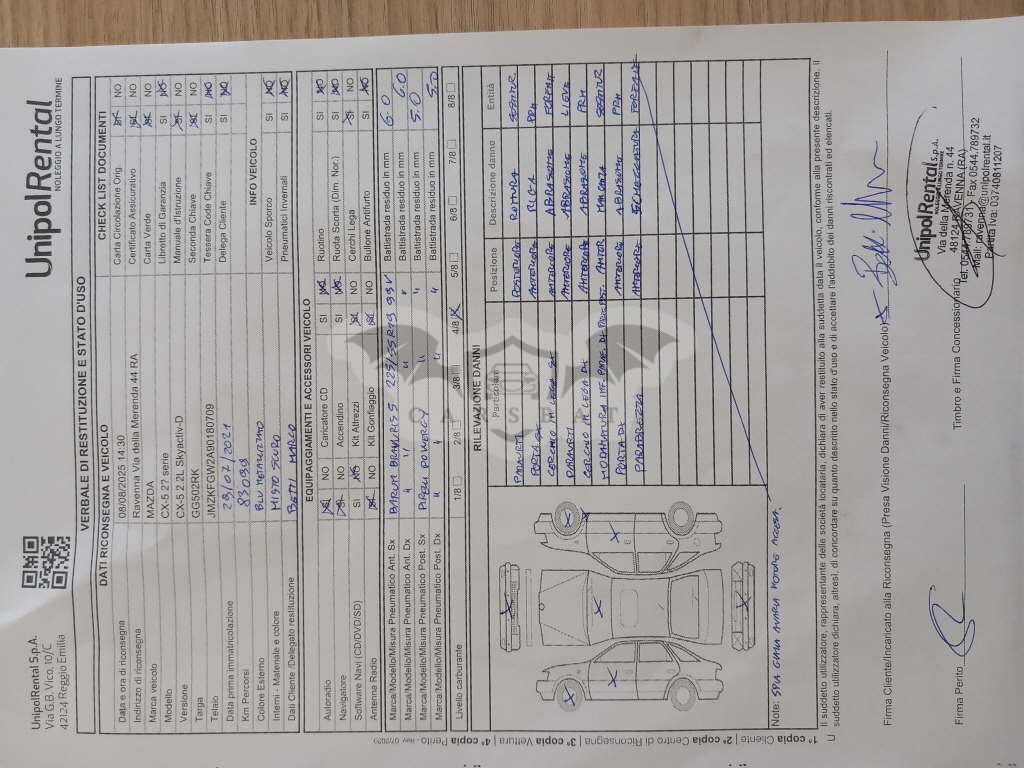 UnipolRental S.p.A.
Via G.B. Vico, 10/C
42124 Reggio Emilia
UnipolRental
NOLEGGIO A LUNGO TERMINE
VERBALE DI RESTITUZIONE E STATO D'USO
DATI RICONSEGNA E VEICOLO
Data e ora di riconsegna 08/08/2025 14:30
Indirizzo di riconsegna Ravenna Via della Merenda 44 RA
Marca veicolo MAZDA
Modello CX-5 2? serie
Versione CX-5 2.2L Skyactiv-D
Targa GG502RK
Telaio JMZKFGW2A90180709
Data prima immatricolazione 29/07/2021
Km Percorsi 83099
Colore Esterno BLU METALIZZATO
Interni - Materiale e colore MISTO SCURO
Dati Cliente /Delegato restituzione BETTI MARCO
CHECK LIST DOCUMENTI
Carta Circolazione Orig. SI NO
Certificato Assicurativo SI NO
Carta Verde SI NO
Libretto di Garanzia SI NO
Manuale d'Istruzione SI NO
Seconda Chiave SI NO
Tessera Code Chiave SI NO
Delega Cliente SI NO
INFO VEICOLO
Veicolo Sporco SI NO
Pneumatici Invernali SI NO
EQUIPAGGIAMENTI E ACCESSORI VEICOLO
Autoradio SI NO Caricatore CD SI NO Ruotino SI NO
Navigatore SI NO Accendino SI NO Ruota Scorta (Dim. Nor.) SI NO
Software Navi (CD/DVD/SD) SI NO Kit Attrezzi SI NO Cerchi Lega SI NO
Antenna Radio SI NO Kit Gonfiaggio SI NO Bullone Antifurto SI NO
Marca/Modello/Misura Pneumatico Ant. Sx BARUM BRAVURIS 5 225/55R19 99V Battistrada residuo in mm 6.0
Marca/Modello/Misura Pneumatico Ant. Dx " " " " Battistrada residuo in mm 6.0
Marca/Modello/Misura Pneumatico Post. Sx POWERGY " " Battistrada residuo in mm 5.0
Marca/Modello/Misura Pneumatico Post. Dx " " " " Battistrada residuo in mm 5.0
Livello carburante 1/8 2/8 3/8 4/8 5/8 6/8 7/8 8/8
RILEVAZIONE DANNI
Particolare Posizione Descrizione danno Entità
PARAURTI POSTERIORE ROTTURA SOSTITUIR
PORTA SX ANTERIORE RIGA
CERCHIO IN LEGA SX ANTERIORE ABRASIONE FORFAIT
PARAURTI ANTERIORE ABRASIONE LIEVE
CERCHIO IN LEGA DX ANTERIORE ABRASIONE
MODANATURA MANCANZA SOSTITUIR
PORTA DX ANTERIORE ABRASIONE
PARABREZZA ANTERIORE
Note: SPIA GIALLA AVARIA MOTORE ACCESA.
Il suddetto utilizzatore, rappresentante delle società locataria, dichiara di aver restituito alla suddetta data il veicolo, conforme alla presente descrizione. Il
suddetto utilizzatore dichiara, altresì, di concordare su quanto descritto nello stato d'uso e di accettare l'addebito dei danni riscontrati ed elencati.
Firma Cliente/Incaricato alla Riconsegna (Presa Visione Danni/Riconsegna Veicolo)
Firma Perito
Timbro e Firma Concessionario
UnipolRental S.p.A.
NOLEGGIO A LUNGO TERMINE
Via della Merenda n. 44
48124 RAVENNA (RA)
Tel. 0544.789731 Fax 0544.789732
Mail: ravenna@unipolrental.it
Partita Iva: 03740811207
1ª copia Cliente | 2ª copia Centro di Riconsegna | 3ª copia Vettura | 4ª copia Perito - Rev. 07/2020
CARSPEAT